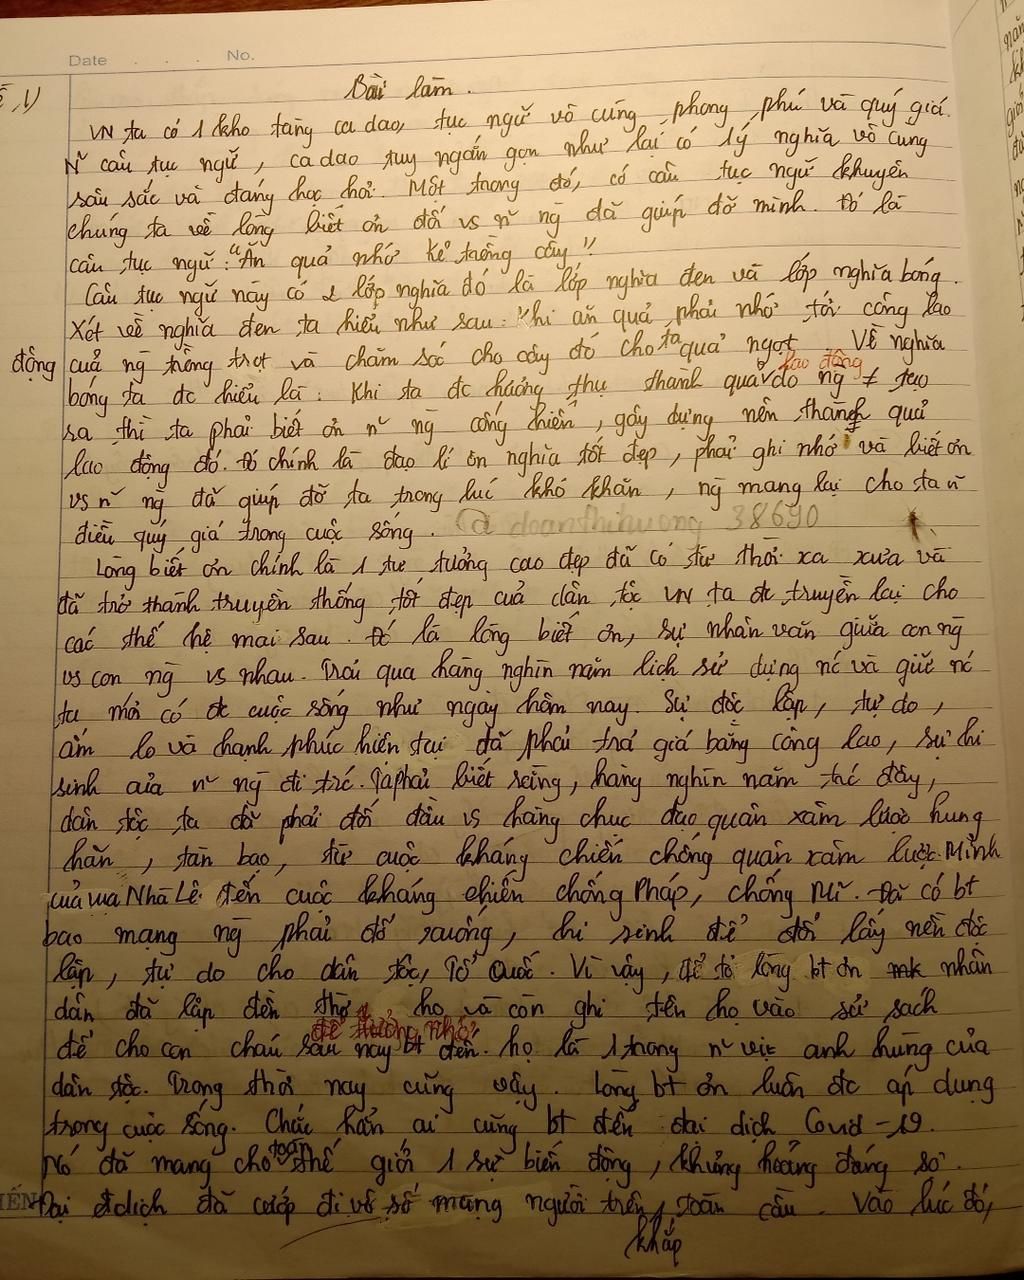 Date . . . No.
Bài làm.
VN ta có 1 kho tàng ca dao, tục ngữ vô cùng phong phú và quý giá.
N~ câu tục ngữ, ca dao tuy ngắn gọn như lại có 1 ý nghĩa vô cùng
sâu sắc và đáng học hỏi. Một trong đó, có câu tục ngữ khuyên
chúng ta về lòng biết ơn đối vs n~ ng đã giúp đỡ mình. Đó là
câu tục ngữ: "Ăn quả nhớ kẻ trồng cây"
Câu tục ngữ này có 2 lớp nghĩa đó là lớp nghĩa đen và lớp nghĩa bóng.
Xét về nghĩa đen ta hiểu như sau: Khi ăn quả phải nhớ tới công lao
động của ng trồng trọt và chăm sóc cho cây đó cho ta quả ngọt. Về nghĩa
bóng ta đc hiểu là: Khi ta đc hưởng thụ thành quả lao động do ng ≠ tạo
ra thì ta phải biết ơn n~ ng cống hiến, gây dựng nên thành quả
lao động đó. Đó chính là đạo lí ơn nghĩa tốt đẹp, phải ghi nhớ và biết ơn
vs n~ ng đã giúp đỡ ta trong lúc khó khăn, ng mang lại cho ta n~
điều quý giá trong cuộc sống. doanthihuong 38690
Lòng biết ơn chính là 1 tư tưởng cao đẹp đã có từ thời xa xưa và
đã trở thành truyền thống tốt đẹp của dân tộc VN ta đc truyền lại cho
các thế hệ mai sau. Đó là lòng biết ơn, sự nhân văn giữa con ng
vs con ng vs nhau. Trải qua hàng nghìn năm lịch sử dựng nc và giữ nc
ta mới có đc cuộc sống như ngày hôm nay. Sự độc lập, tự do,
ấm lo và hạnh phúc hiện tại đã phải trả giá bằng công lao, sự hi
sinh của n~ ng đi trc. Ta phải biết rằng, hàng nghìn năm trc đây,
dân tộc ta đã phải đối đầu vs hàng chục đạo quân xâm lược hung
hãn, tàn bạo, từ cuộc kháng chiến chống quân xâm lược Minh
của vua Nhà Lê đến cuộc kháng chiến chống Pháp, chống Mĩ. Đã có bt
bao mạng ng phải đổ xuống, hi sinh để đổi lấy nền độc
lập, tự do cho dân tộc, Tổ Quốc. Vì vậy, để tỏ lòng bt ơn nhân
dân đã lập đền thờ để tưởng nhớ họ và còn ghi tên họ vào sử sách
để cho con cháu sau này bt đến họ là 1 trong n~ vị anh hùng của
dân tộc. Trong thời nay cũng vậy. Lòng bt ơn luôn đc áp dụng
trong cuộc sống. Chắc hẳn ai cũng bt đến đại dịch Covid-19.
Nó đã mang cho toàn thế giới 1 sự biến động, khủng hoảng đáng sợ.
Đại dịch đã cướp đi vô số mạng người trên khắp toàn cầu. Vào lúc đó,